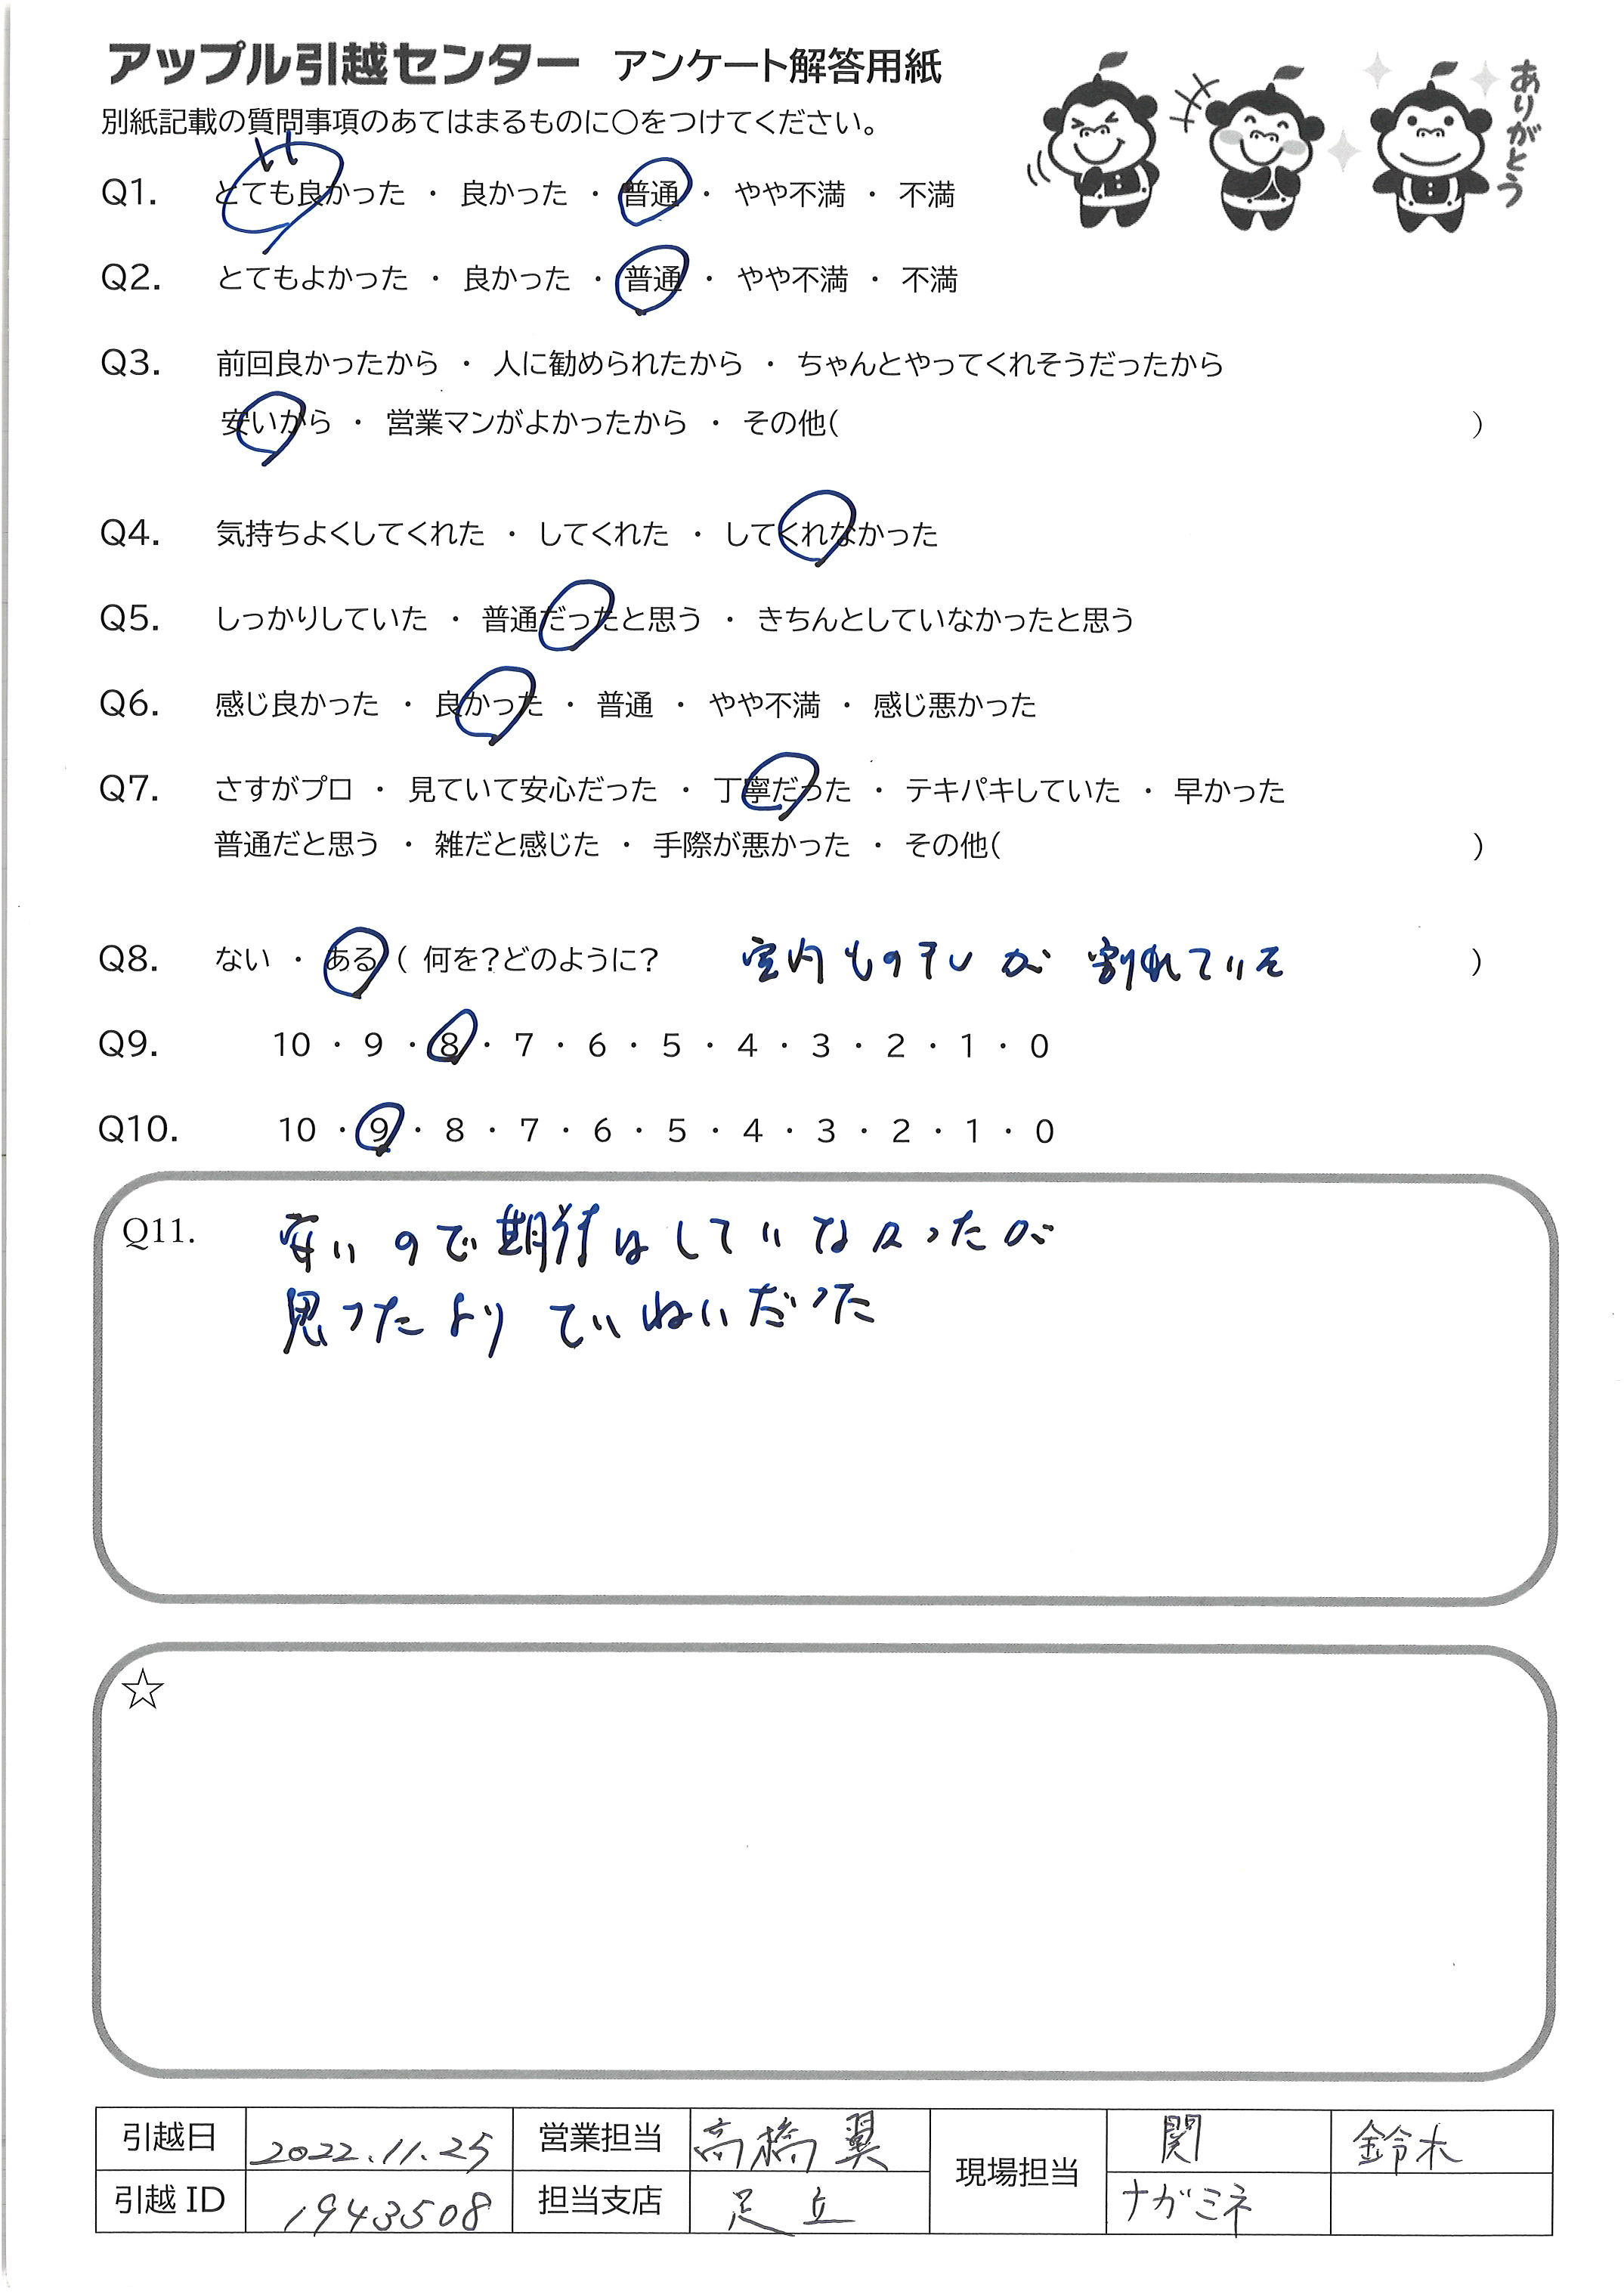 アップル引越センター アンケート解答用紙
別紙記載の質問事項のあてはまるものに○をつけてください。
ありがとう
Q1. とても良かった ・ 良かった ・ 普通 ・ やや不満 ・ 不満
Q2. とてもよかった ・ 良かった ・ 普通 ・ やや不満 ・ 不満
Q3. 前回良かったから ・ 人に勧められたから ・ ちゃんとやってくれそうだったから
安いから ・ 営業マンがよかったから ・ その他( )
Q4. 気持ちよくしてくれた ・ してくれた ・ してくれなかった
Q5. しっかりしていた ・ 普通だったと思う ・ きちんとしていなかったと思う
Q6. 感じ良かった ・ 良かった ・ 普通 ・ やや不満 ・ 感じ悪かった
Q7. さすがプロ ・ 見ていて安心だった ・ 丁寧だった ・ テキパキしていた ・ 早かった
普通だと思う ・ 雑だと感じた ・ 手際が悪かった ・ その他( )
Q8. ない ・ ある ( 何を？どのように？ 室内ものホしが 割れている )
Q9. 10 ・ 9 ・ 8 ・ 7 ・ 6 ・ 5 ・ 4 ・ 3 ・ 2 ・ 1 ・ 0
Q10. 10 ・ 9 ・ 8 ・ 7 ・ 6 ・ 5 ・ 4 ・ 3 ・ 2 ・ 1 ・ 0
Q11. 安いので期待はしていなかったが
思ったより ていねいだった
☆
引越日 2022.11.25 営業担当 高橋翼 現場担当 関 鈴木
引越 ID 1943508 担当支店 足立 ナガミネ